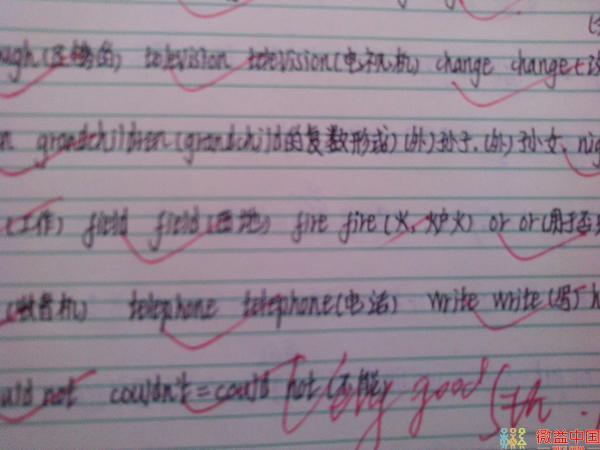 television television (电视机) change change
grandchildren (grandchild的复数形式) (外)孙子,(外)孙女,
(工作) field field (田地) fire fire (火,炉火) or or (用于否
(收音机) telephone telephone (电话) write write (写)
not couldn't = could not (不能) good
微益中国